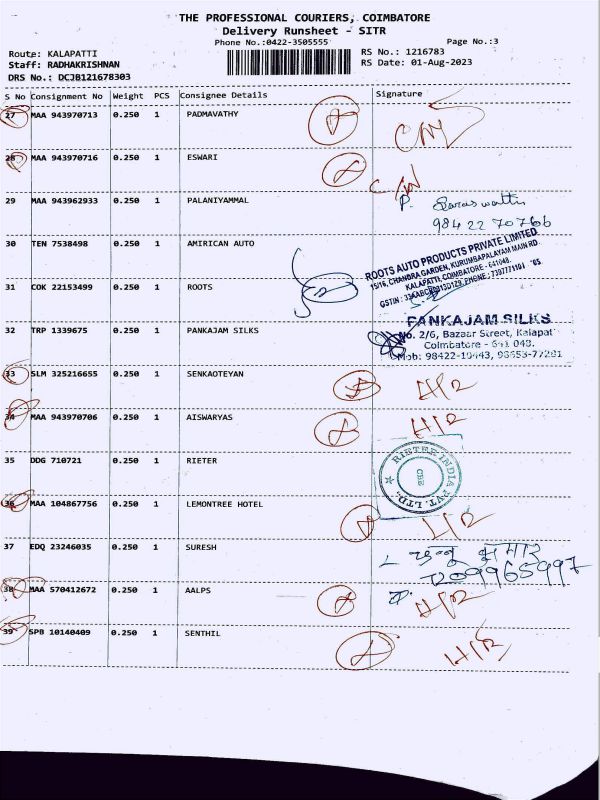 THE PROFESSIONAL COURIERS, COIMBATORE
Delivery Runsheet - SITR
Phone No.:0422-3505555 Page No.:3
Route: KALAPATTI RS No.: 1216783
Staff: RADHAKRISHNAN RS Date: 01-Aug-2023
DRS No.: DCJB121678303
S No Consignment No Weight PCS Consignee Details Signature
27 MAA 943970713 0.250 1 PADMAVATHY
28 MAA 943970716 0.250 1 ESWARI
29 MAA 943962933 0.250 1 PALANIYAMMAL P. Saraswathi
98422 70766
30 TEN 7538498 0.250 1 AMIRICAN AUTO
ROOTS AUTO PRODUCTS PRIVATE LIMITED
15/16, CHANDRA GARDEN, KURUMBAPALAYAM MAIN RD.
KALAPATTI, COIMBATORE - 641048.
31 COK 22153499 0.250 1 ROOTS
32 TRP 1339675 0.250 1 PANKAJAM SILKS PANKAJAM SILKS
No. 2/6, Bazaar Street, Kalapat
Coimbatore - 641 048.
Mob: 98422-19443, 98653-77281
33 SLM 325216655 0.250 1 SENKAOTEYAN H/R
34 MAA 943970706 0.250 1 AISWARYAS H/R
35 DDG 710721 0.250 1 RIETER RIETER INDIA PVT. LTD.
36 MAA 104867756 0.250 1 LEMONTREE HOTEL H/R
37 EDQ 23246035 0.250 1 SURESH कुमार
38 MAA 570412672 0.250 1 AALPS H/R
39 SPB 10140409 0.250 1 SENTHIL H/R